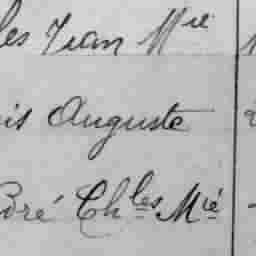 les Jean Mie
is Auguste
oré Chles Mié